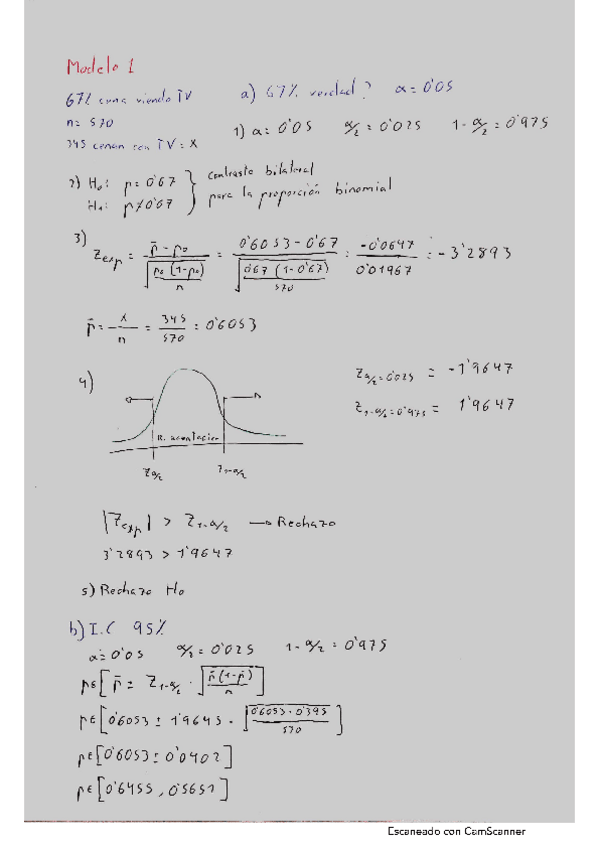 Modelo 1
67% cena viendo TV
n = 570
345 cenan con TV = X
a) 67% verdad? α = 0'05
1) α = 0'05 α/2 = 0'025 1-α/2 = 0'975
2) H₀: p = 0'67 } contraste bilateral
H₁: p ≠ 0'67 } para la proporción binomial
3) Zexp = (p̄ - p₀) / √(p₀(1-p₀)/n) = (0'6053 - 0'67) / √(0'67(1-0'67)/570) = -0'0647 / 0'01967 = -3'2893
p̄ = x/n = 345/570 = 0'6053
4)
Zα/2=0'025 = -1'9647
Z1-α/2=0'975 = 1'9647
R. aceptación
Zα/2 Z1-α/2
|Zexp| > Z1-α/2 → Rechazo
3'2893 > 1'9647
5) Rechazo H₀
b) I.C 95%
α = 0'05 α/2 = 0'025 1-α/2 = 0'975
p∈[p̄ ± Z1-α/2 · √(p̄(1-p̄)/n)]
p∈[0'6053 ± 1'9645 · √(0'6053·0'395/570)]
p∈[0'6053 ± 0'0402]
p∈[0'6455, 0'5651]
Escaneado con CamScanner